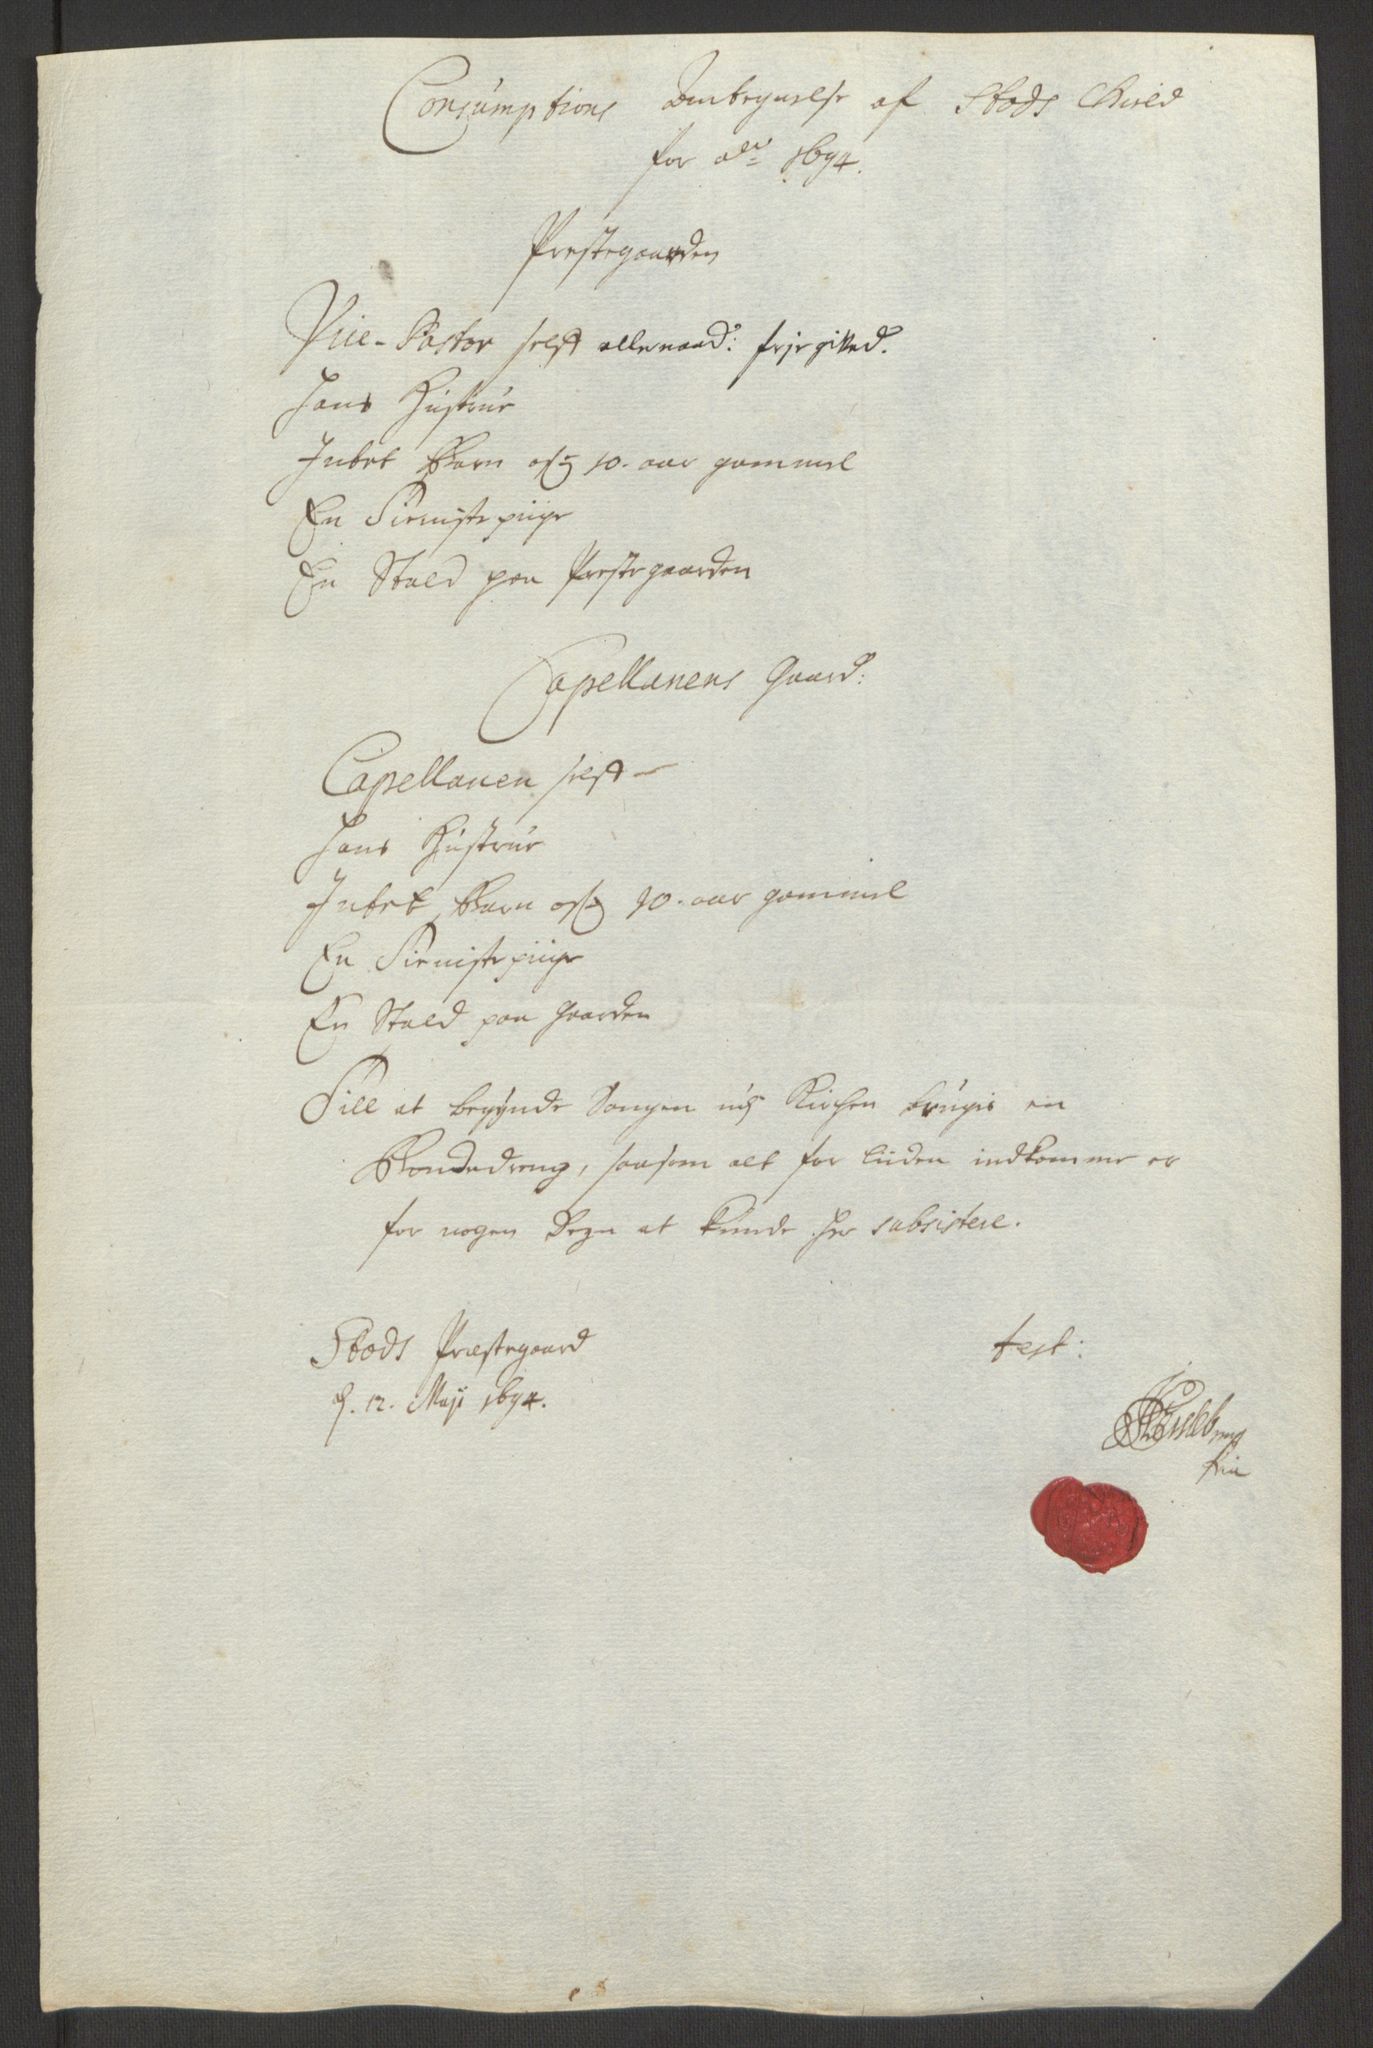 Consumptions Ombegnelse af Stods Gield
for aar 1694.
Prestegaarden
Vice-Pastor self allernaad: frjegived.
Hans Hustrue
Intet Barn ofr 10. aar gammel
En Tienniste piige
En Stald paa Prestegaarden
Capellanens Gaard:
Capellanen self
Hans Hustrue
Intet Barn ofr 10. aar gammel
En Tienniste piige
En Stald paa Gaarden
Till at begynde Sangen udj Kirchen brugis en
Bondedreng, saasom alt for liiden indkomme er
for nogen Degn at kunde her subsistere.
Stods Præstegaard
d. 12. Maji 1694.
test: